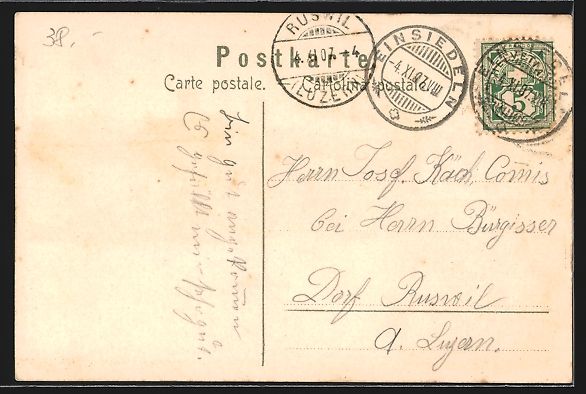 38.-
Postkarte
Carte postale.
Cartolina postale.
RUSWIL
4.XI.07.-4
(LUZERN)
EINSIEDELN
-4.XI.07.VIII
EINSIEDELN
5
Bin gut angekommen
Es gefällt mir sehr gut.
Herrn Josef Käch, Comis
bei Herrn Bürgisser
Dorf Ruswil
Luzern.